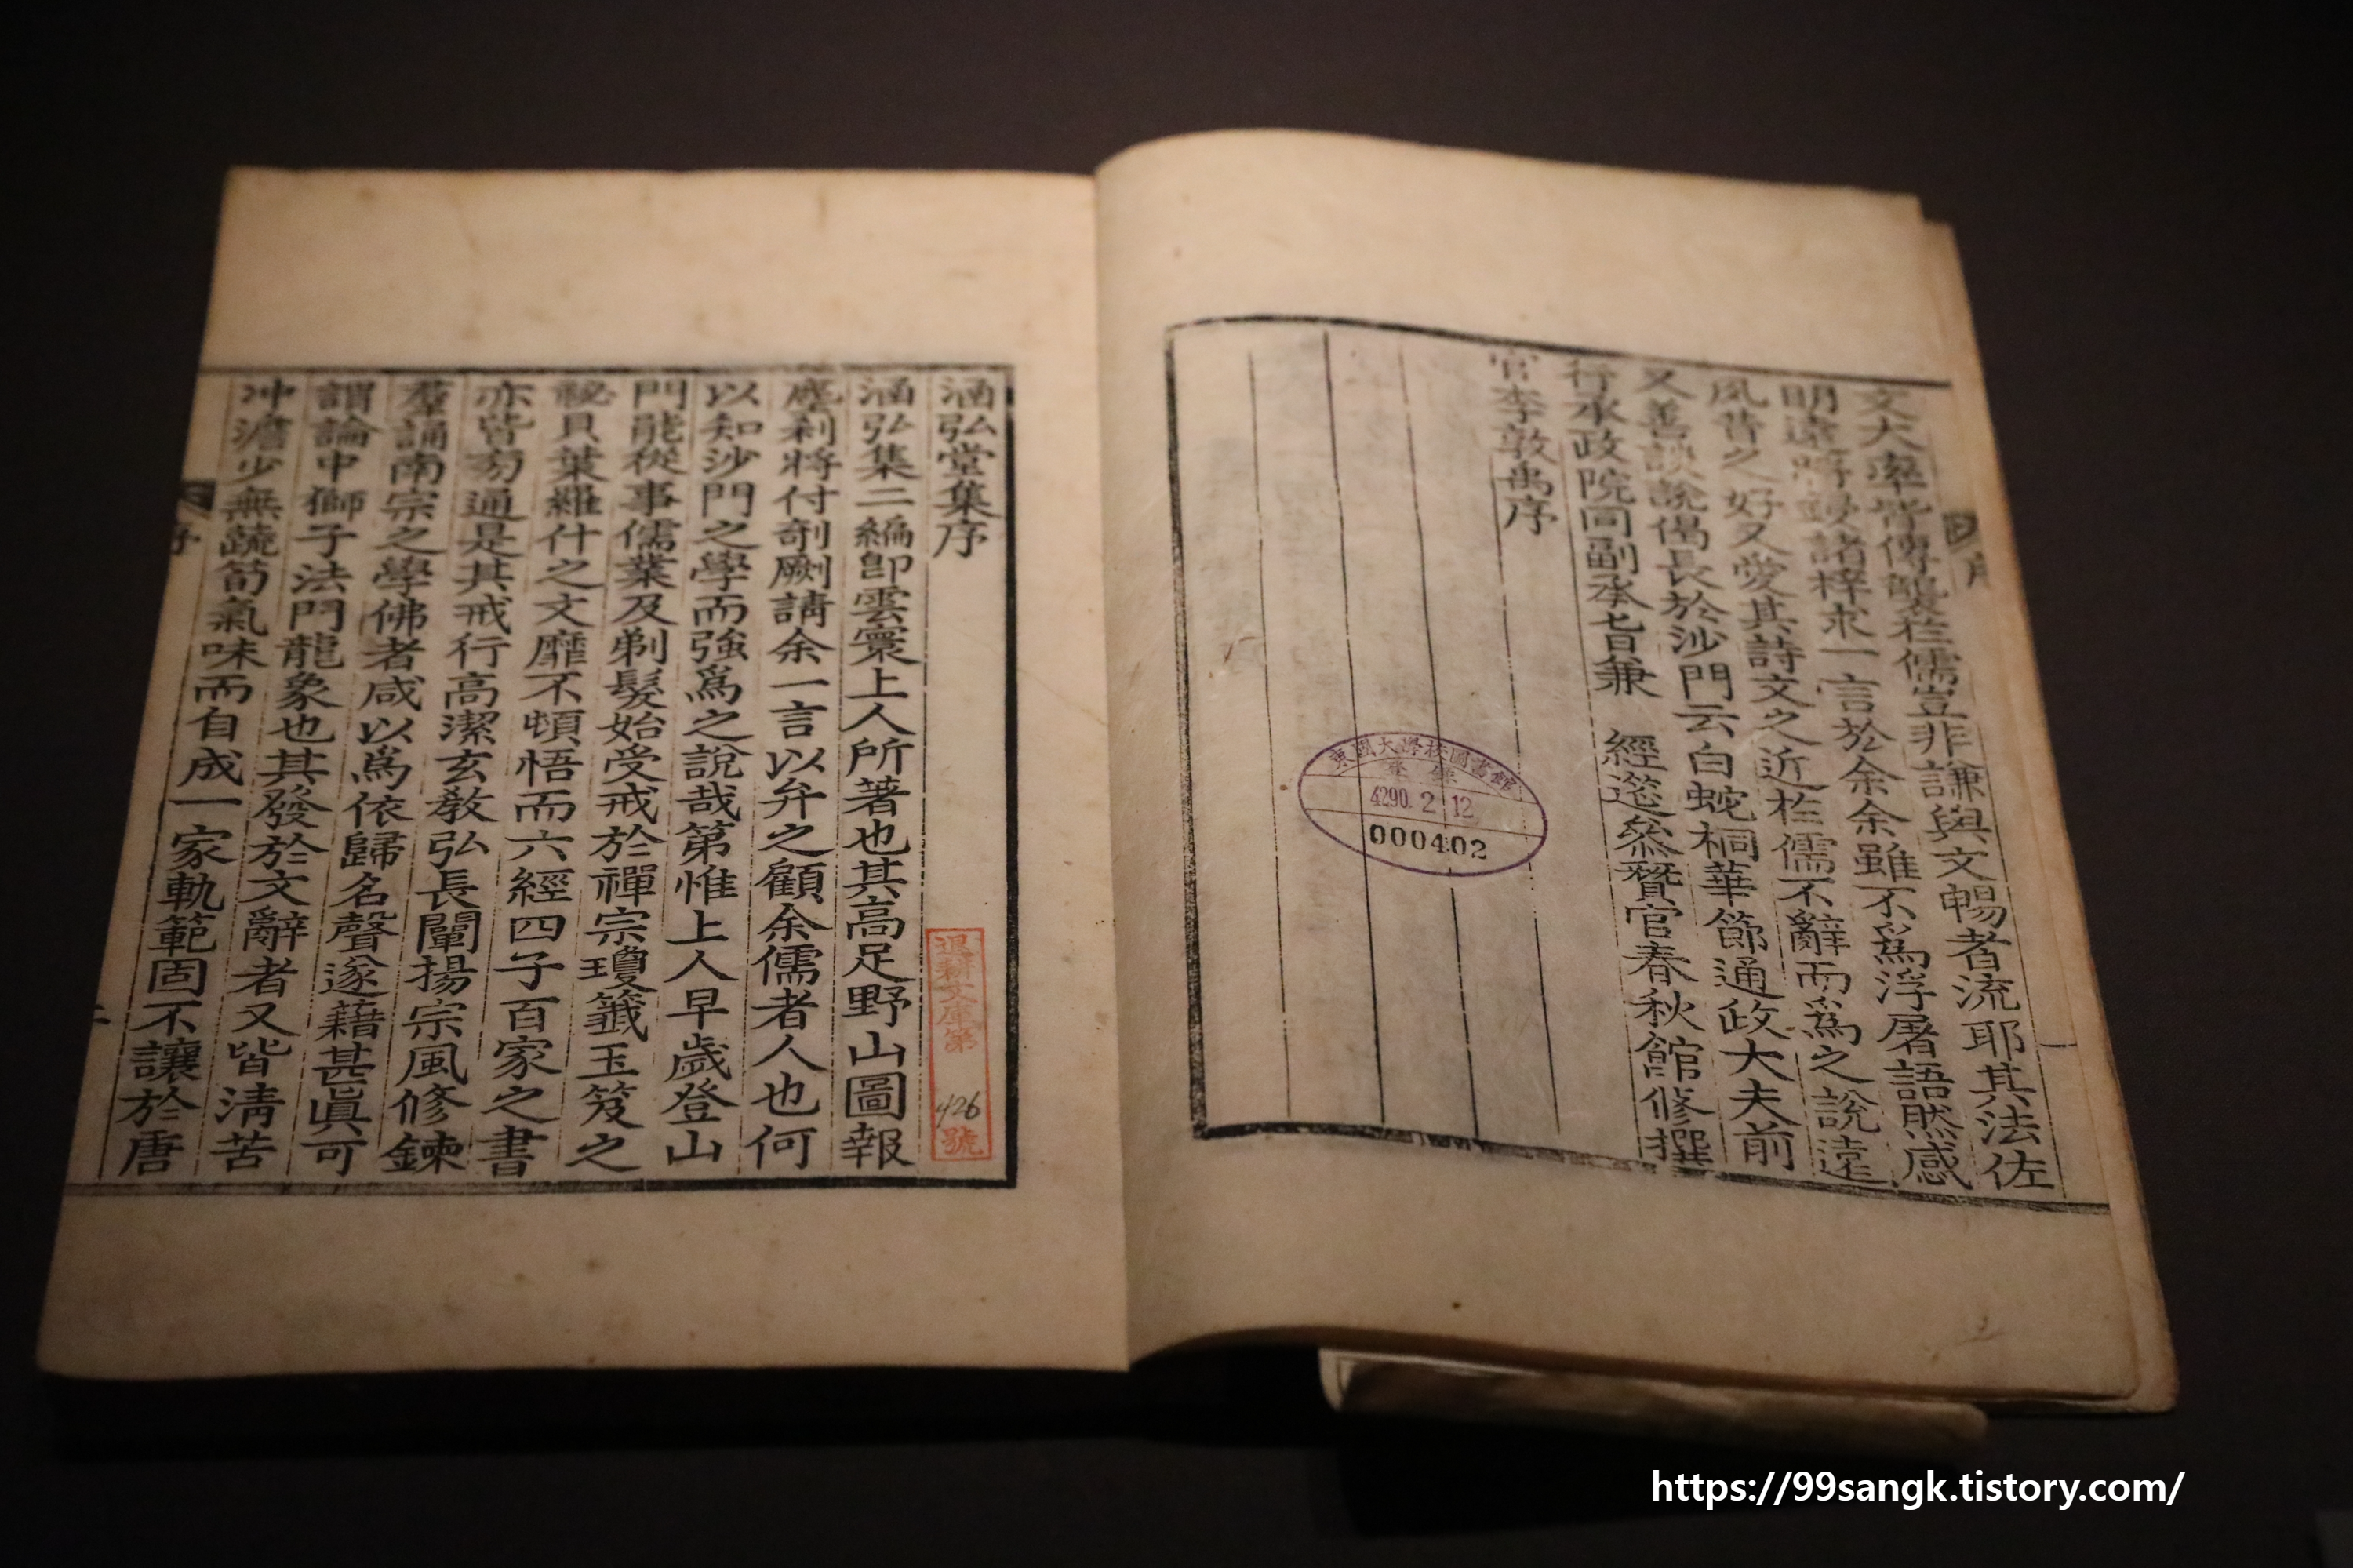 文大率皆傳襲於儒豈非謙與文暢者流耶其法佐
明遠將鋟諸梓求一言於余余雖不爲浮屠語然感
風昔之好又愛其詩文之近於儒不辭而爲之說遠
又善談說偈長於沙門云白蛇桐華節通政大夫前
行承政院同副承旨兼 經筵參贊官春秋館修撰
官李敦禹序
東國大學校圖書館
登錄
4290. 2 12
000402
序
一
涵弘堂集序
涵弘集二編卽雲寰上人所著也其高足野山圖報
塵刹將付剞劂請余一言以弁之顧余儒者人也何
以知沙門之學而強爲之說哉第惟上人早歲登山
門能從事儒業及剃髮始受戒於禪宗瓊籤玉笈之
祕貝葉羅什之文靡不頓悟而六經四子百家之書
亦皆旁通是其戒行高潔玄敎弘長闡揚宗風修鍊
羣誦南宗之學佛者咸以爲依歸名聲遂藉甚眞可
謂論中獅子法門龍象也其發於文辭者又皆淸苦
冲澹少無蔬筍氣味而自成一家軌範固不讓於唐
退耕文庫第
426
號
序
二
https://99sangk.tistory.com/